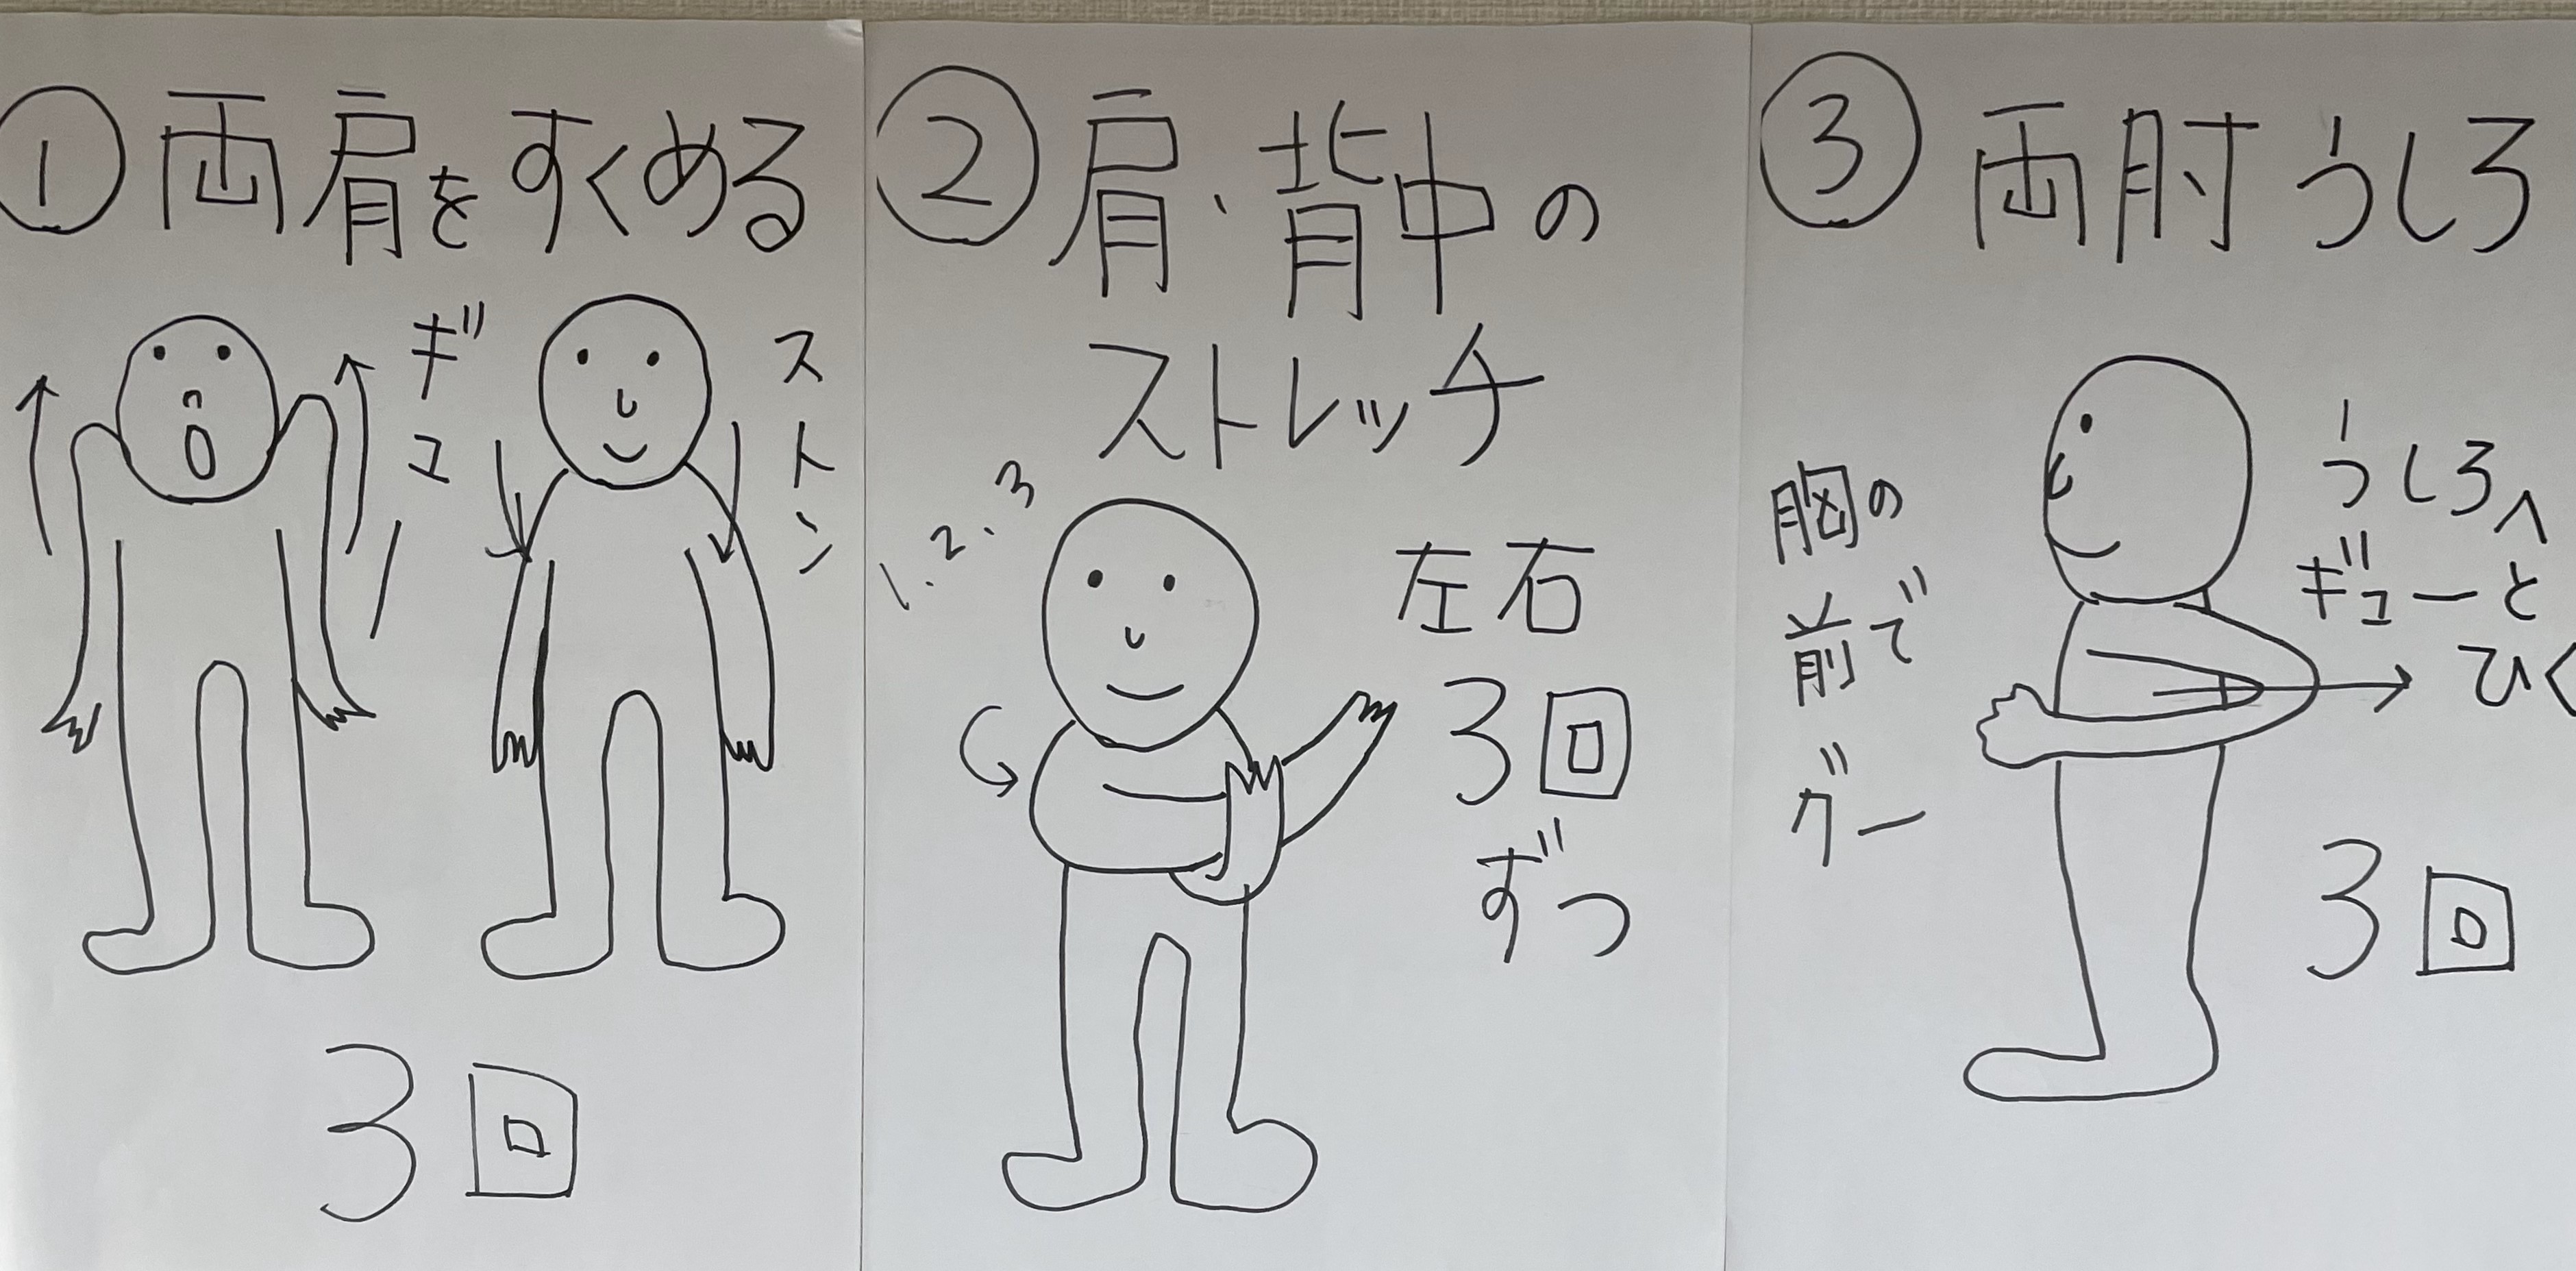 ① 両肩をすくめる
ギュー
ストン
3回
② 肩、背中の
ストレッチ
1.2.3
左右
3回
ずつ
③ 両肘うしろ
胸の
前で
グー
うしろへ
ギューと
ひく
3回